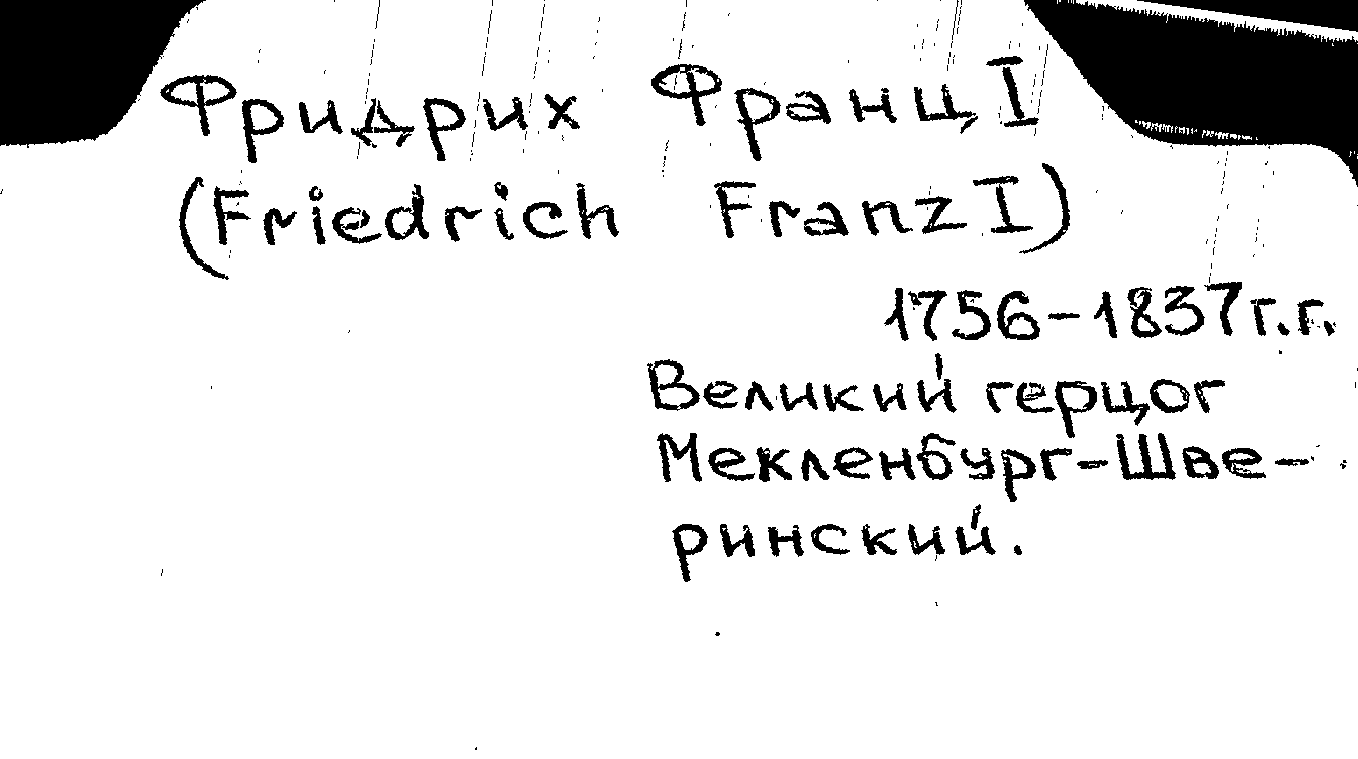 Фридрих Франц I
(Friedrich Franz I)
1756-1837г.г.
Великий герцог
Мекленбург-Шве-
ринский.